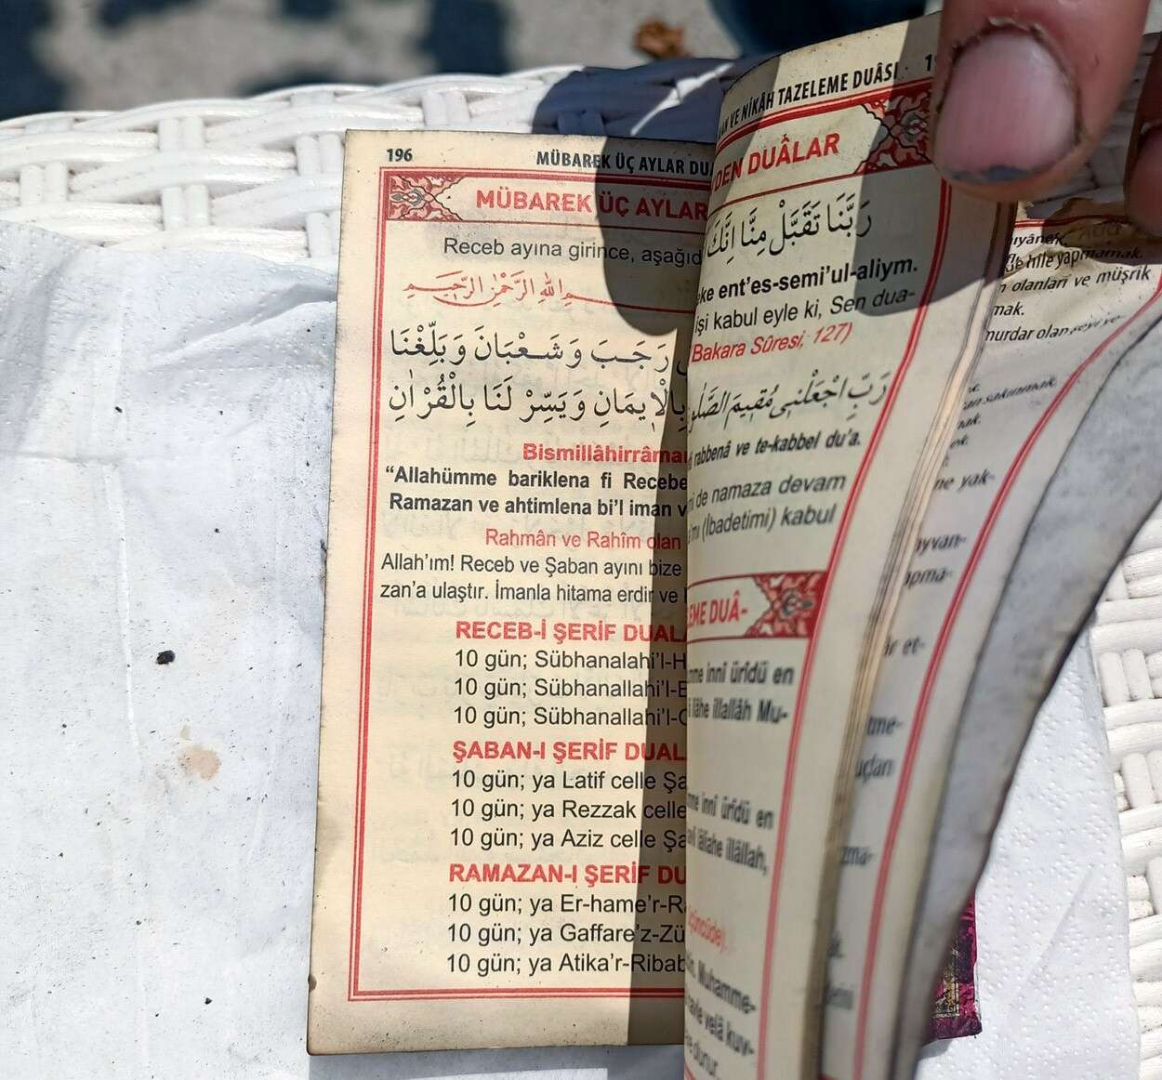 196
MÜBAREK ÜÇ AYLAR DU
MÜBAREK ÜÇ AYLAR
Receb ayına girince, aşağıd
بسم الله الرحمن الرحيم
رَجَبَ وَشَعْبَانَ وَبَلِّغْنَا
بِالْاِيمَانِ وَيَسِّرْ لَنَا بِالْقُرْاٰنِ
Bismillâhirrâma
“Allahümme bariklena fi Recebe
Ramazan ve ahtimlena bi’l iman v
Rahmân ve Rahîm olan
Allah’ım! Receb ve Şaban ayını bize
zan’a ulaştır. İmanla hitama erdir ve
RECEB-İ ŞERİF DUAL
10 gün; Sübhanalahi’l-H
10 gün; Sübhanallahi’l-E
10 gün; Sübhanallahi’l-
ŞABAN-I ŞERİF DUAL
10 gün; ya Latif celle Şa
10 gün; ya Rezzak celle
10 gün; ya Aziz celle Şa
RAMAZAN-I ŞERİF DU
10 gün; ya Er-hame’r-R
10 gün; ya Gaffare’z-Zü
10 gün; ya Atika’r-Ribab
VE NİKÂH TAZELEME DUÂSI
DEN DUÂLAR
رَبَّنَا تَقَبَّلْ مِنَّا اِنَّكَ
ke ent’es-semi’ul-aliym.
işi kabul eyle ki, Sen dua-
Bakara Sûresi, 127)
رَبِّ اجْعَلْنِى مُقِيمَ الصَّلٰو
rabbenâ ve te-kabbel du’a.
de namaza devam
(İbadetimi) kabul
LEME DUÂ-
innî ürîdü en
lâhe illallâh Mu-
innî ürîdü en
illâllah,
üçüncüde).
Muhamme-
velâ kuv-
hile yapmamak.
olanları ve müşrik
mak.
murdar olan
sakınmak
mak.
ne yak-
yvan-
apma-
ir et-
tme-
uçlan